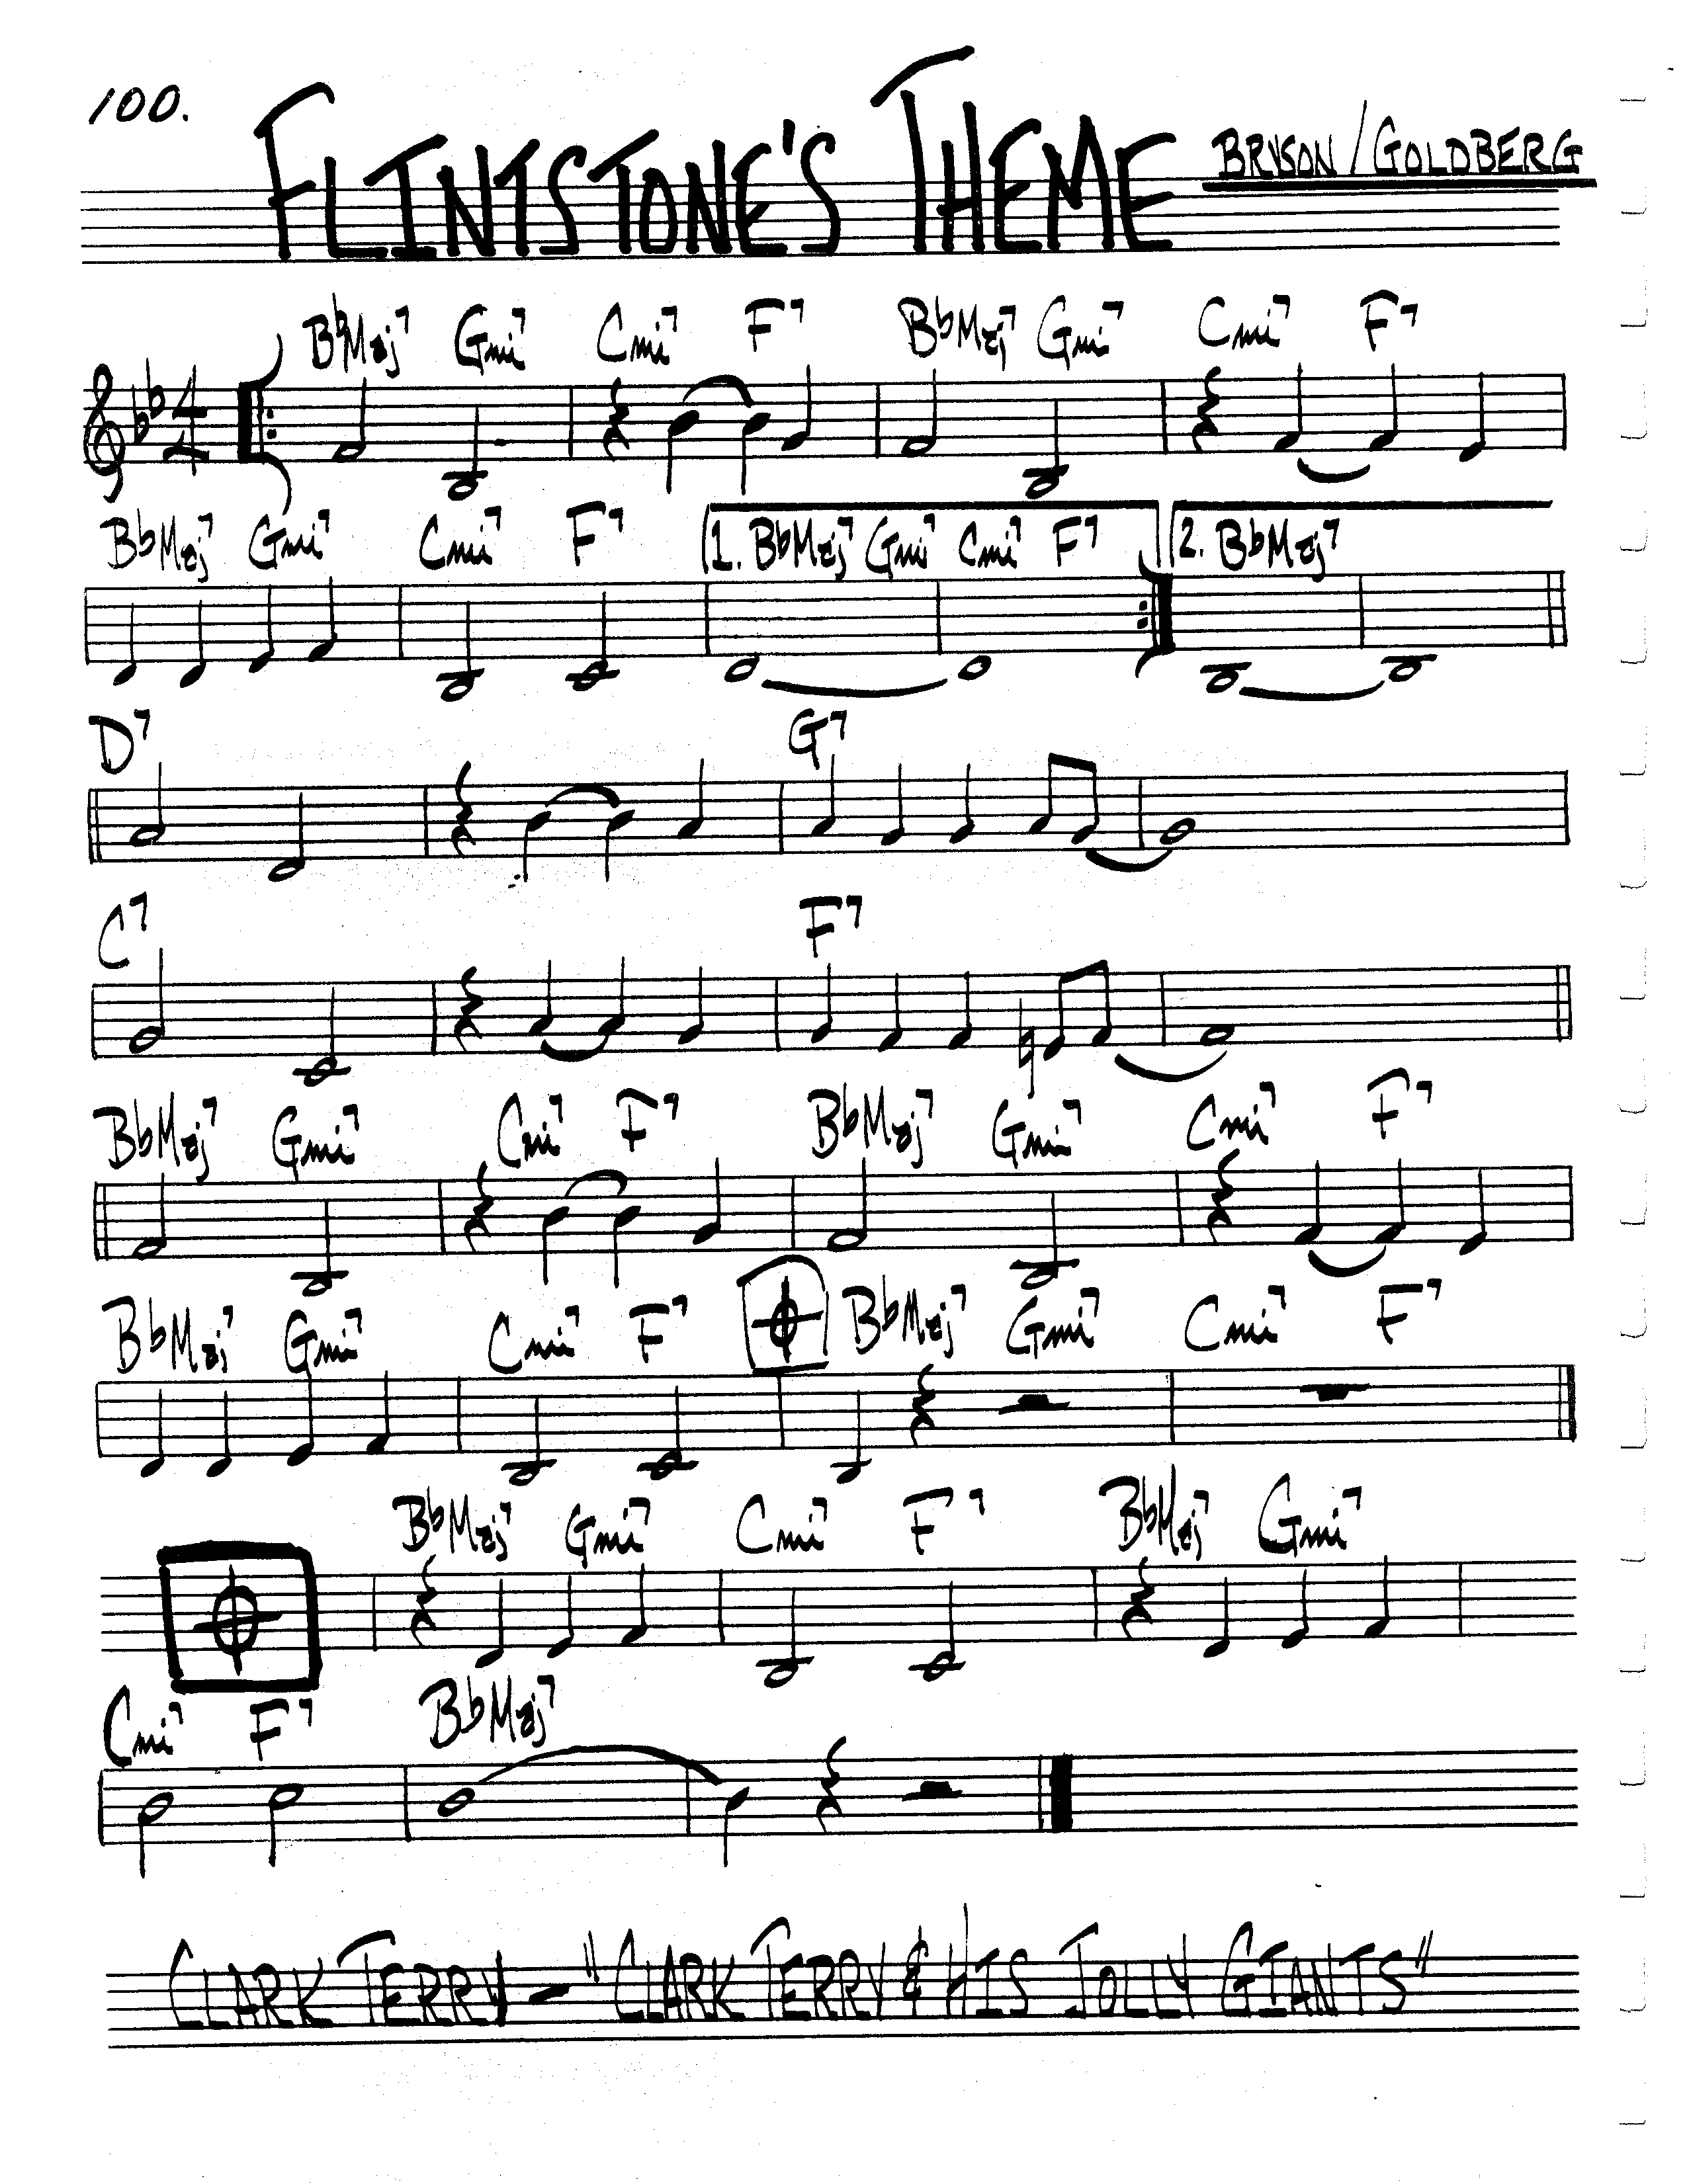 100.
FLINTSTONE'S THEME
BRYSON / GOLDBERG
B♭Maj7 Gmi7 Cmi7 F7 B♭Maj7 Gmi7 Cmi7 F7
4
4
B♭Maj7 Gmi7 Cmi7 F7 1. B♭Maj7 Gmi7 Cmi7 F7 2. B♭Maj7
D7 G7
C7 F7
B♭Maj7 Gmi7 Cmi7 F7 B♭Maj7 Gmi7 Cmi7 F7
B♭Maj7 Gmi7 Cmi7 F7 B♭Maj7 Gmi7 Cmi7 F7
B♭Maj7 Gmi7 Cmi7 F7 B♭Maj7 Gmi7
Cmi7 F7 B♭Maj7
CLARK TERRY - "CLARK TERRY & HIS JOLLY GIANTS"